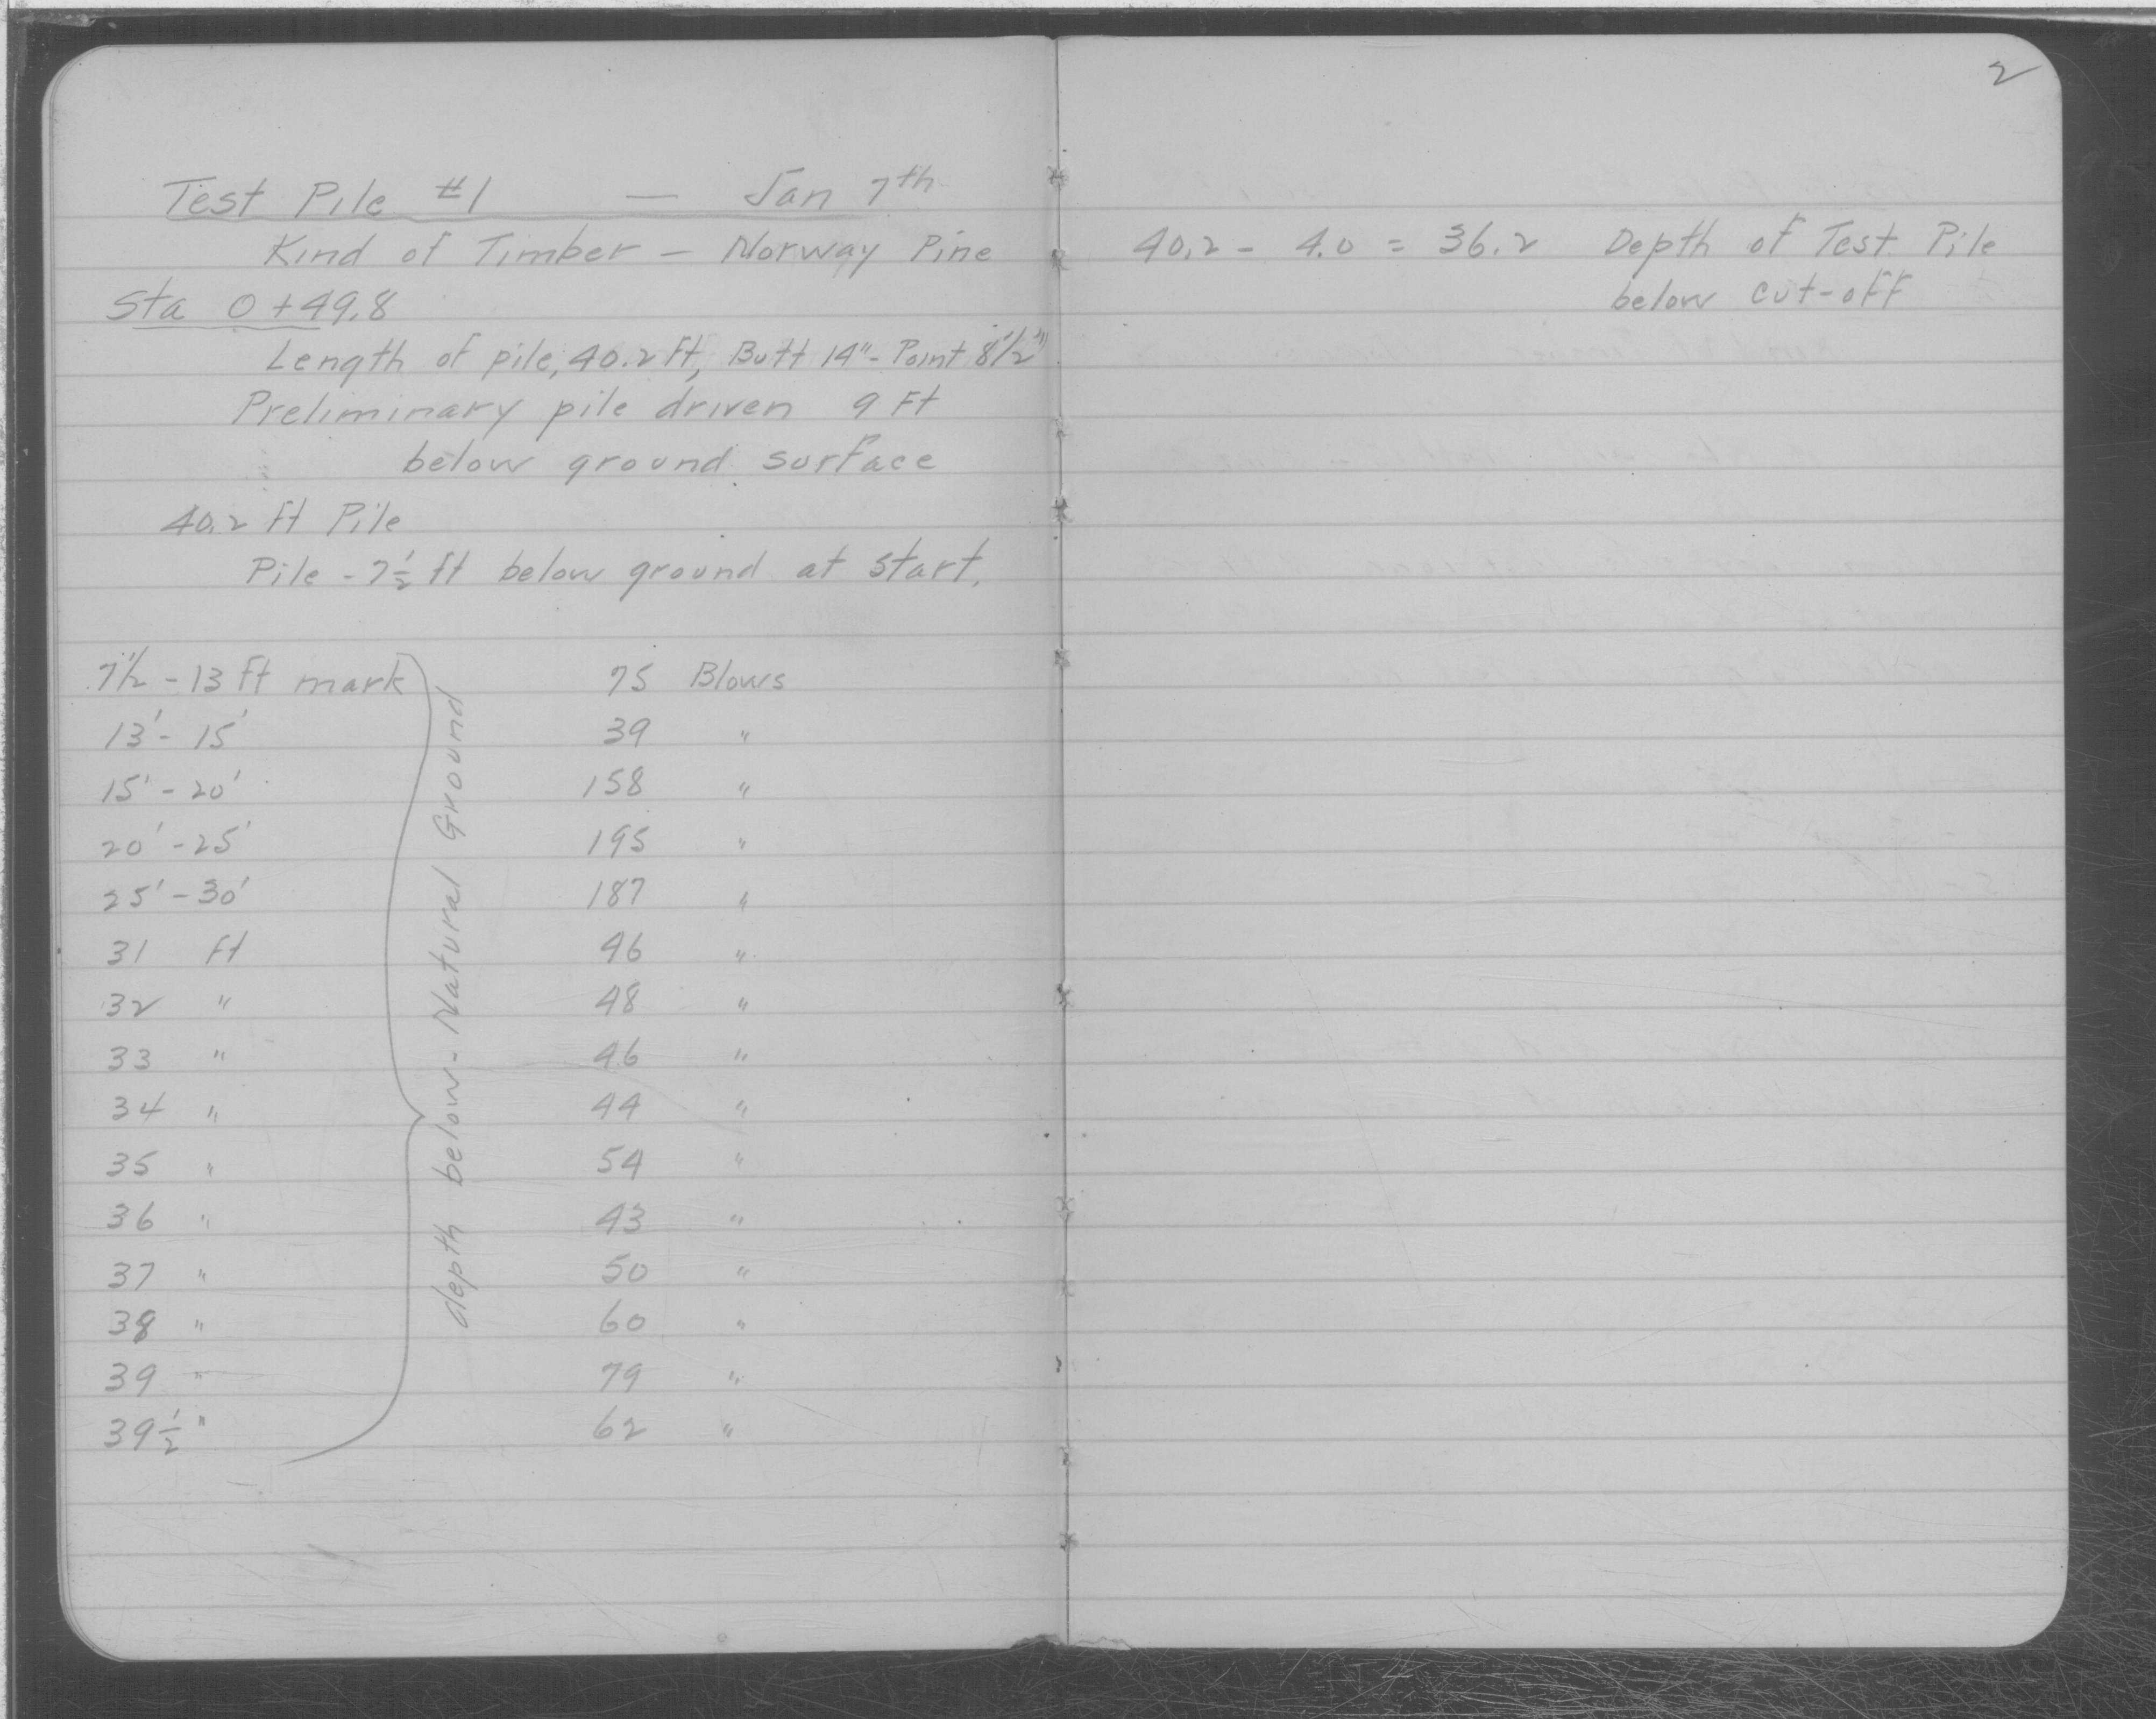 2
Test Pile #1 — Jan 7th
Kind of Timber – Norway Pine
Sta 0+49.8
Length of pile, 40.2 ft, Butt 14" - Point 8 1/2"
Preliminary pile driven 9 Ft
below ground surface
40.2 ft Pile
Pile - 7 1/2 ft below ground at start.
7 1/2 - 13 ft mark 75 Blows
13' - 15' 39 "
15' - 20' 158 "
20' - 25' 195 "
25' - 30' 187 "
31 ft 46 "
32 " 48 "
33 " 46 "
34 " 44 "
35 " 54 "
36 " 43 "
37 " 50 "
38 " 60 "
39 " 79 "
39 1/2 " 62 "
depth below - Natural Ground
40.2 - 4.0 = 36.2 Depth of Test Pile
below cut-off